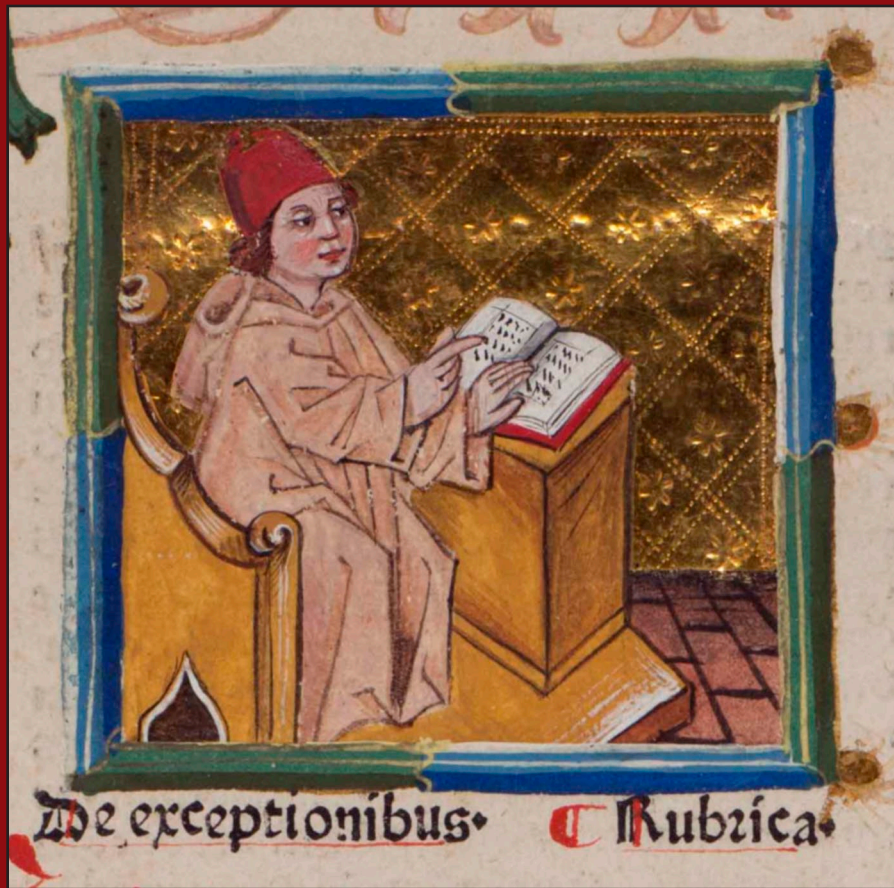 De exceptionibus. ¶ Rubrica.